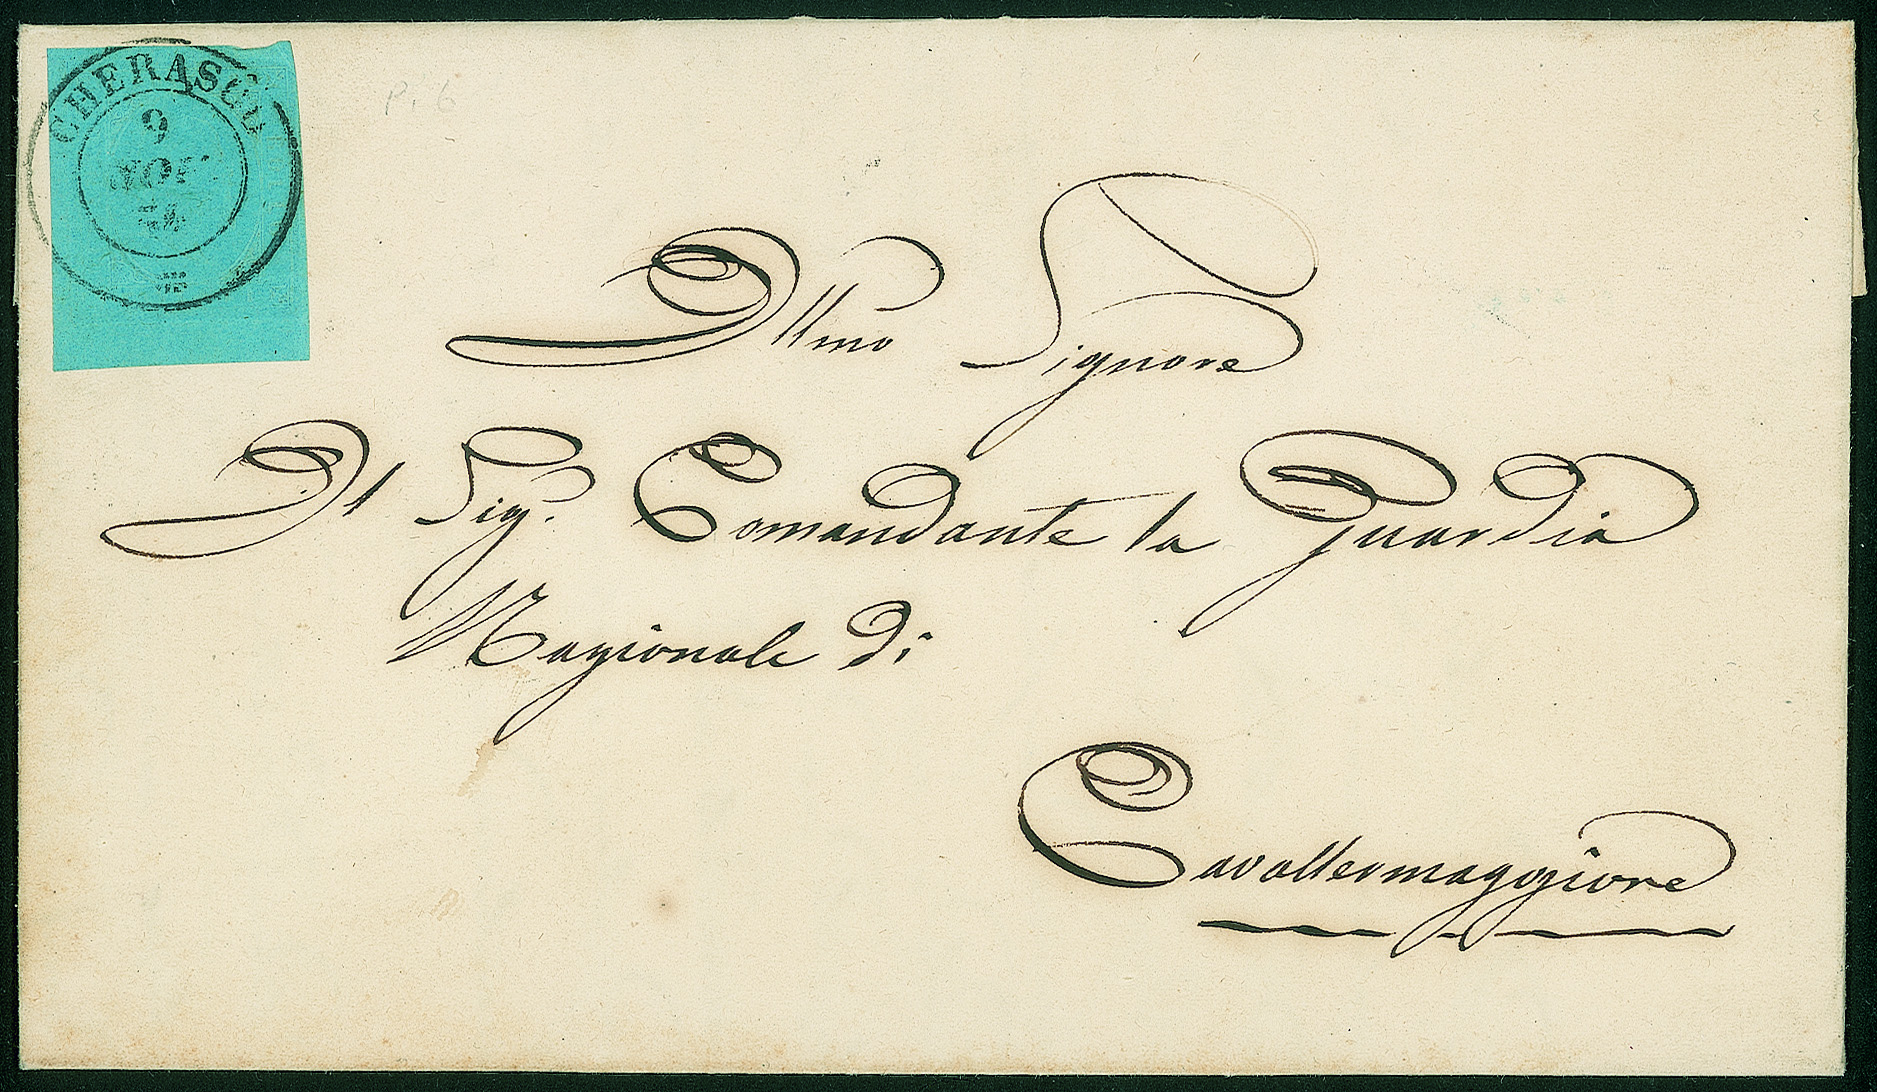 CHERASCO
9
NOV
54
P. 6
Illmo Signore
Il Sig.r Comandante la Guardia
Nazionale di
Cavallermaggiore